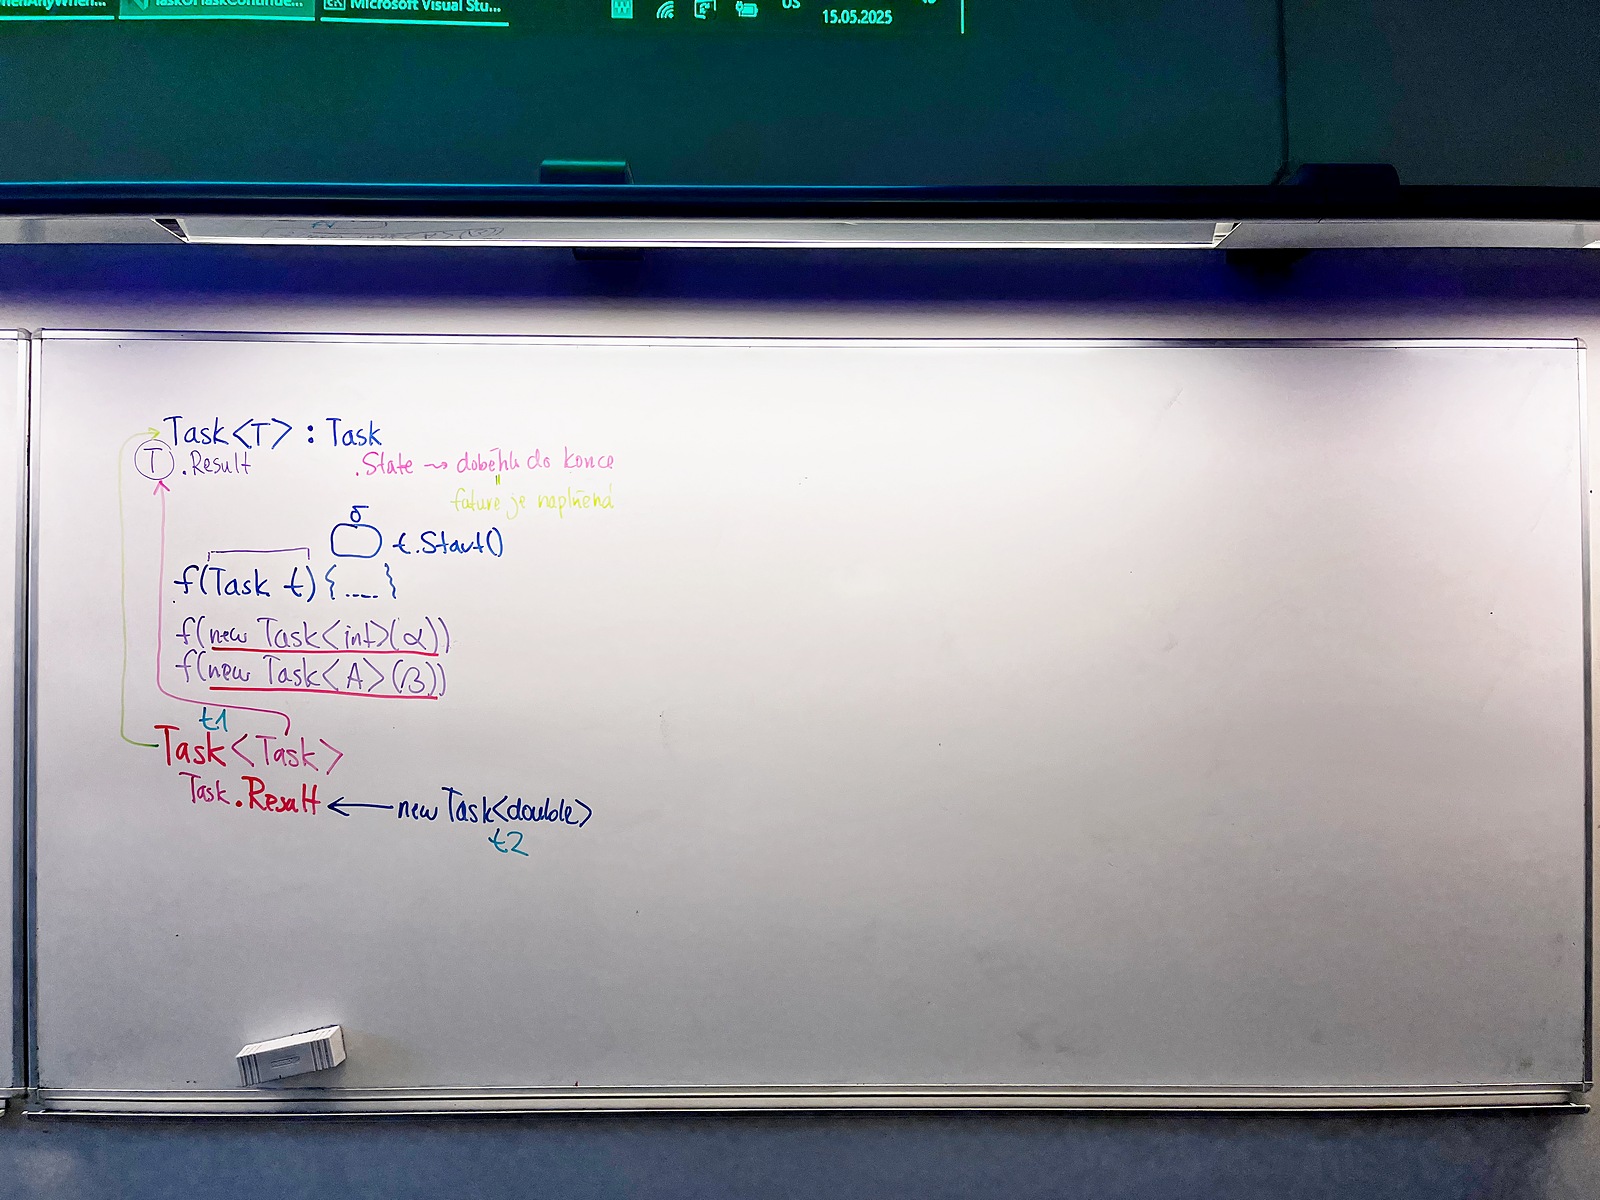 TaskOfTaskContinue...
Microsoft Visual Stu...
US
15.05.2025
Task<T> : Task
T .Result .State ⇝ doběhlu do konce
future je naplněná
δ
t.Start()
f(Task t) {....}
f(new Task<int>(α))
f(new Task<A>(β))
t1
Task<Task>
Task.Result ← new Task<double>
t2